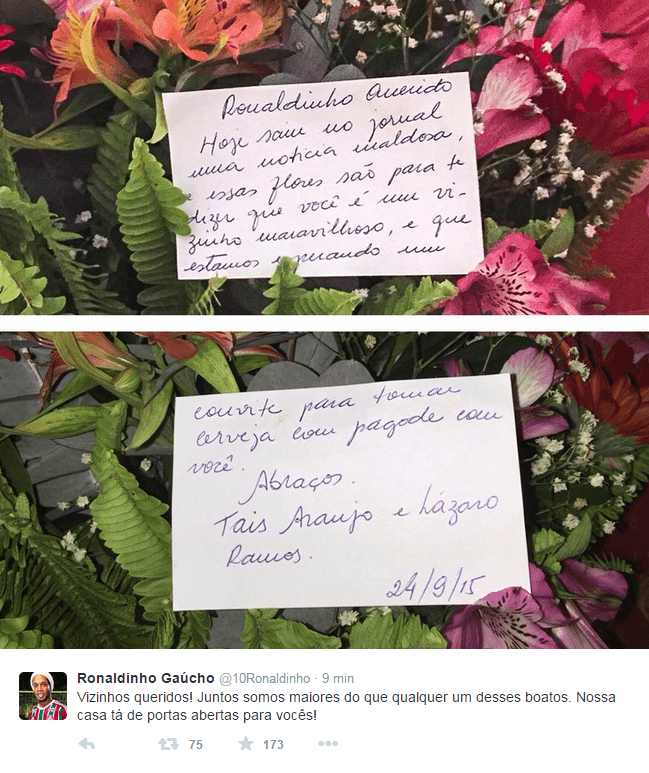 Ronaldinho Querido
Hoje saiu no jornal
uma notícia maldosa,
e essas flores são para te
dizer que você é um vi-
zinho maravilhoso, e que
estamos esperando um
convite para tomar
cerveja com pagode com
você.
Abraços.
Tais Araujo e Lázaro
Ramos.
24/9/15
Ronaldinho Gaúcho @10Ronaldinho · 9 min
Vizinhos queridos! Juntos somos maiores do que qualquer um desses boatos. Nossa
casa tá de portas abertas para vocês!
75 173